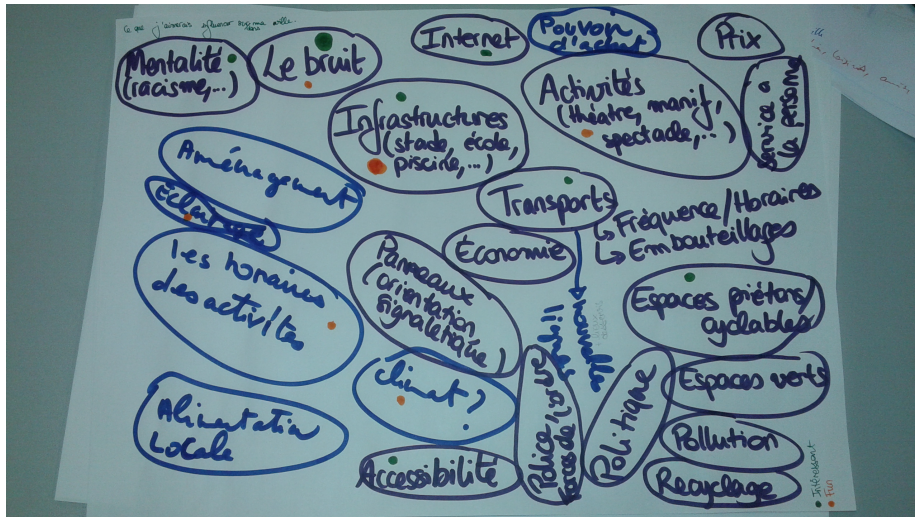 Ce que j'aimerais influencer dans ma ville.
Mentalité
(racisme,...)
Le bruit
Internet
Pouvoir
d'achat
Prix
Infrastructures
(stade, école,
piscine,...)
Activités
(théâtre, manif,
spectacle,...)
Service à
la personne
Aménagement
Éclairage
Transports
↳ Fréquence/Horaires
↳ Embouteillages
Économie
les horaires
des activités
Panneaux
(orientation
signalétique)
Espaces piétons/
cyclables
climat?
Politique
Espaces verts
Alimentation
Locale
Accessibilité
Police,
forces de
Pollution
Recyclage
Intéressant
Fun